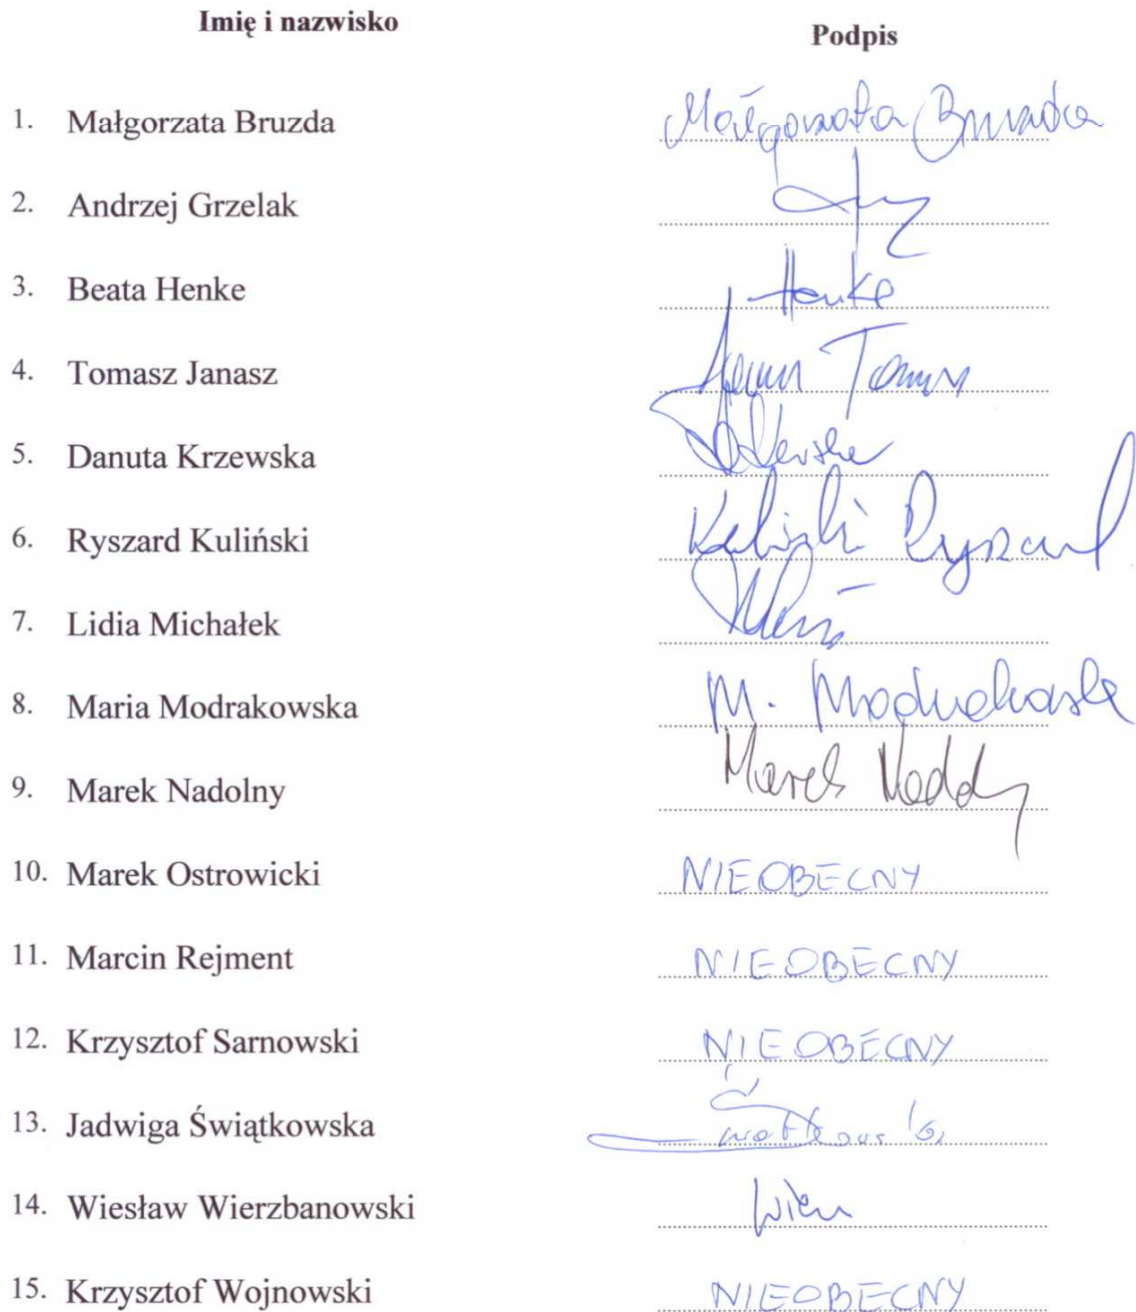 Imię i nazwisko Podpis
1. Małgorzata Bruzda Małgorzata Bruzda
2. Andrzej Grzelak
3. Beata Henke Henke
4. Tomasz Janasz
5. Danuta Krzewska
6. Ryszard Kuliński Kuliński Ryszard
7. Lidia Michałek
8. Maria Modrakowska M. Modrakowska
9. Marek Nadolny Marek Nadolny
10. Marek Ostrowicki NIEOBECNY
11. Marcin Rejment NIEOBECNY
12. Krzysztof Sarnowski NIEOBECNY
13. Jadwiga Świątkowska
14. Wiesław Wierzbanowski
15. Krzysztof Wojnowski NIEOBECNY